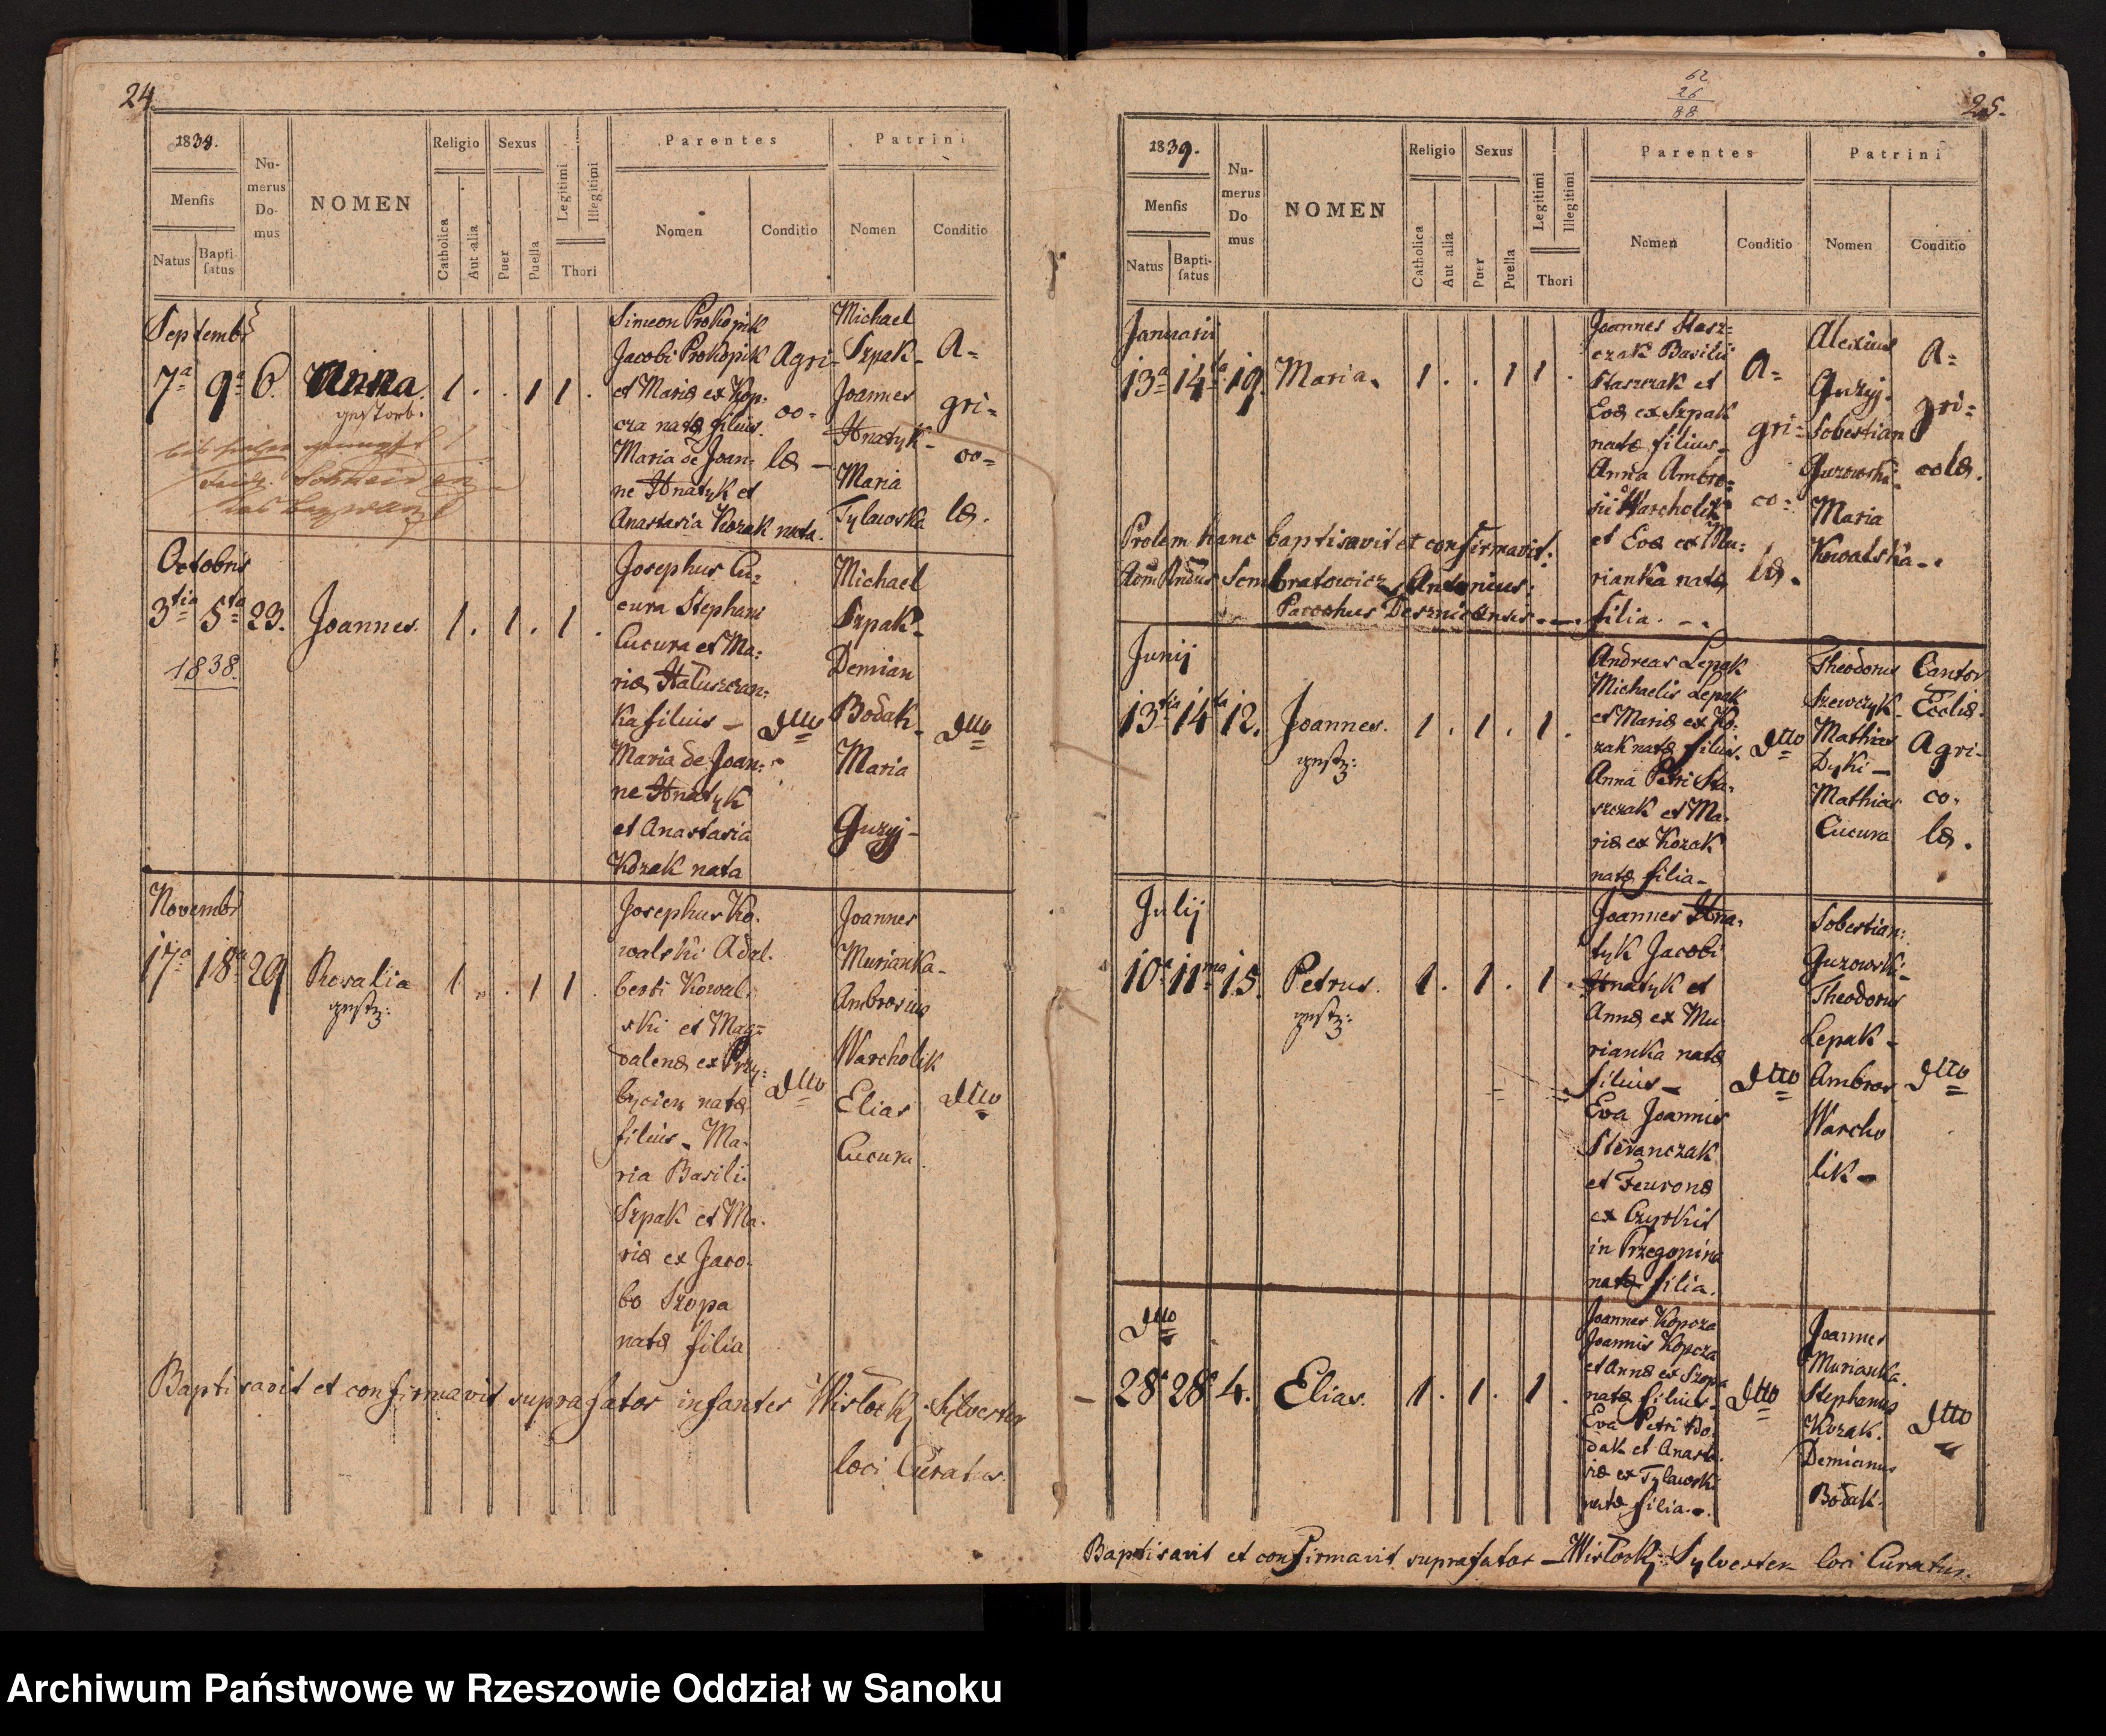 24.
1838.
Mensis
Natus
Bapti-
satus
Nu-
merus
Do-
mus
NOMEN
Religio
Catholica
Aut alia
Sexus
Puer
Puella
Legitimi
Illegitimi
Thori
Parentes
Nomen
Conditio
Patrini
Nomen
Conditio
Septembr
7a 9a 6. Anna. 1 . . 1 1 .
gestorb.
Simeon Prokopik
Jacobi Prokopik
et Mariæ ex Kop-
cza natæ filius.
Maria de Joan-
ne Hnatyk et
Anastasia Kozak nata.
Agri-
co=
læ —
Michael
Szpak-
Joannes
Hnatyk-
Maria
Tylawska
A=
gri=
co=
læ.
Octobris
3tia 5ta 23. Joannes. 1 . 1 . 1 .
1838.
Josephus Cu-
cura Stephani
Cucura et Ma:
riæ Hatuszczan-
ka filius —
Maria de Joan:
ne Hnatyk
et Anastasia
Kozak nata
Dtto
Michael
Szpak-
Demian
Bodak-
Maria
Guzyj-
Dtto
Novembr
17a 18a 29 Rosalia 1 . . 1 1 .
gestz:
Josephus Ko-
walski Adal-
berti Kowal-
ski et Mag=
dalenæ ex Przy:
bycien natæ
filius - Ma-
ria Basili
Szpak et Ma-
riæ ex Jaco-
bo Szopa
natæ filia
Dtto
Joannes
Murianka-
Ambrosius
Warcholik
Elias
Cucura.
Dtto
Baptisavit et confirmavit suprafatos infantes Wislockj Sylvester
loci Curatus.
62
26
88
25.
1839.
Mensis
Natus
Bapti-
satus
Nu-
merus
Do
mus
NOMEN
Religio
Catholica
Aut alia
Sexus
Puer
Puella
Legitimi
Illegitimi
Thori
Parentes
Nomen
Conditio
Patrini
Nomen
Conditio
Januarii
13a 14ta 19. Maria. 1 . . 1 1 .
Joannes Stasz=
czak Basilii
Staszczak et
Evæ ex Szpak
natæ filius-
Anna Ambro=
sii Warcholik
et Evæ ex Mu:
rianka natæ
filia.
A=
gri=
co=
læ.
Alexius
Guzyj.
Sobestian
Guzowski-
Maria
Kowalska..
A=
gri=
colæ.
Prolem hanc baptisavit et confirmavit:
Adm Rndus Sembratowicz Antonius:
Parochus Desznicensis
Junij
13tia 14ta 12. Joannes. 1 . 1 . 1 .
gestz:
Andreas Lepak
Michaelis Lepak
et Mariæ ex Ko-
zak natæ filius.
Anna Petri Sta-
szczak et Ma-
riæ ex Kozak
natæ filia-
Dtto
Theodorus
Szewczyk-
Mathias
Dyki-
Mathias
Cucura
Cantor
Ecclæ.
Agri-
co-
læ.
Julij
10a 11ma 15. Petrus. 1 . 1 . 1 .
gestz:
Joannes Hna-
tyk Jacobi
Hnatyk et
Annæ ex Mu
rianka natæ
filius-
Eva Joannis
Stefanczak
et Feuronæ
ex Czyrkit
in Przegonina
natæ filia.
Dtto
Sobestian:
Guzowski-
Theodorus
Lepak-
Ambros
Warcho
lik-
Dtto
Dtto
28a 28a 4. Elias. 1 . 1 . 1 .
Joannes Kopcza
Joannis Kopcza
et Annæ ex Szopa
natæ filius-
Eva Petri Bo-
dak et Anasta-
siæ ex Tylawsk-
natæ filia.-.
Dtto
Joannes
Murianka.
Stephanus
Kozak.
Demianus
Bodak.
Dtto
Baptisavit et confirmavit suprafatos — Wislockj Sylvester loci Curatus.
Archiwum Państwowe w Rzeszowie Oddział w Sanoku